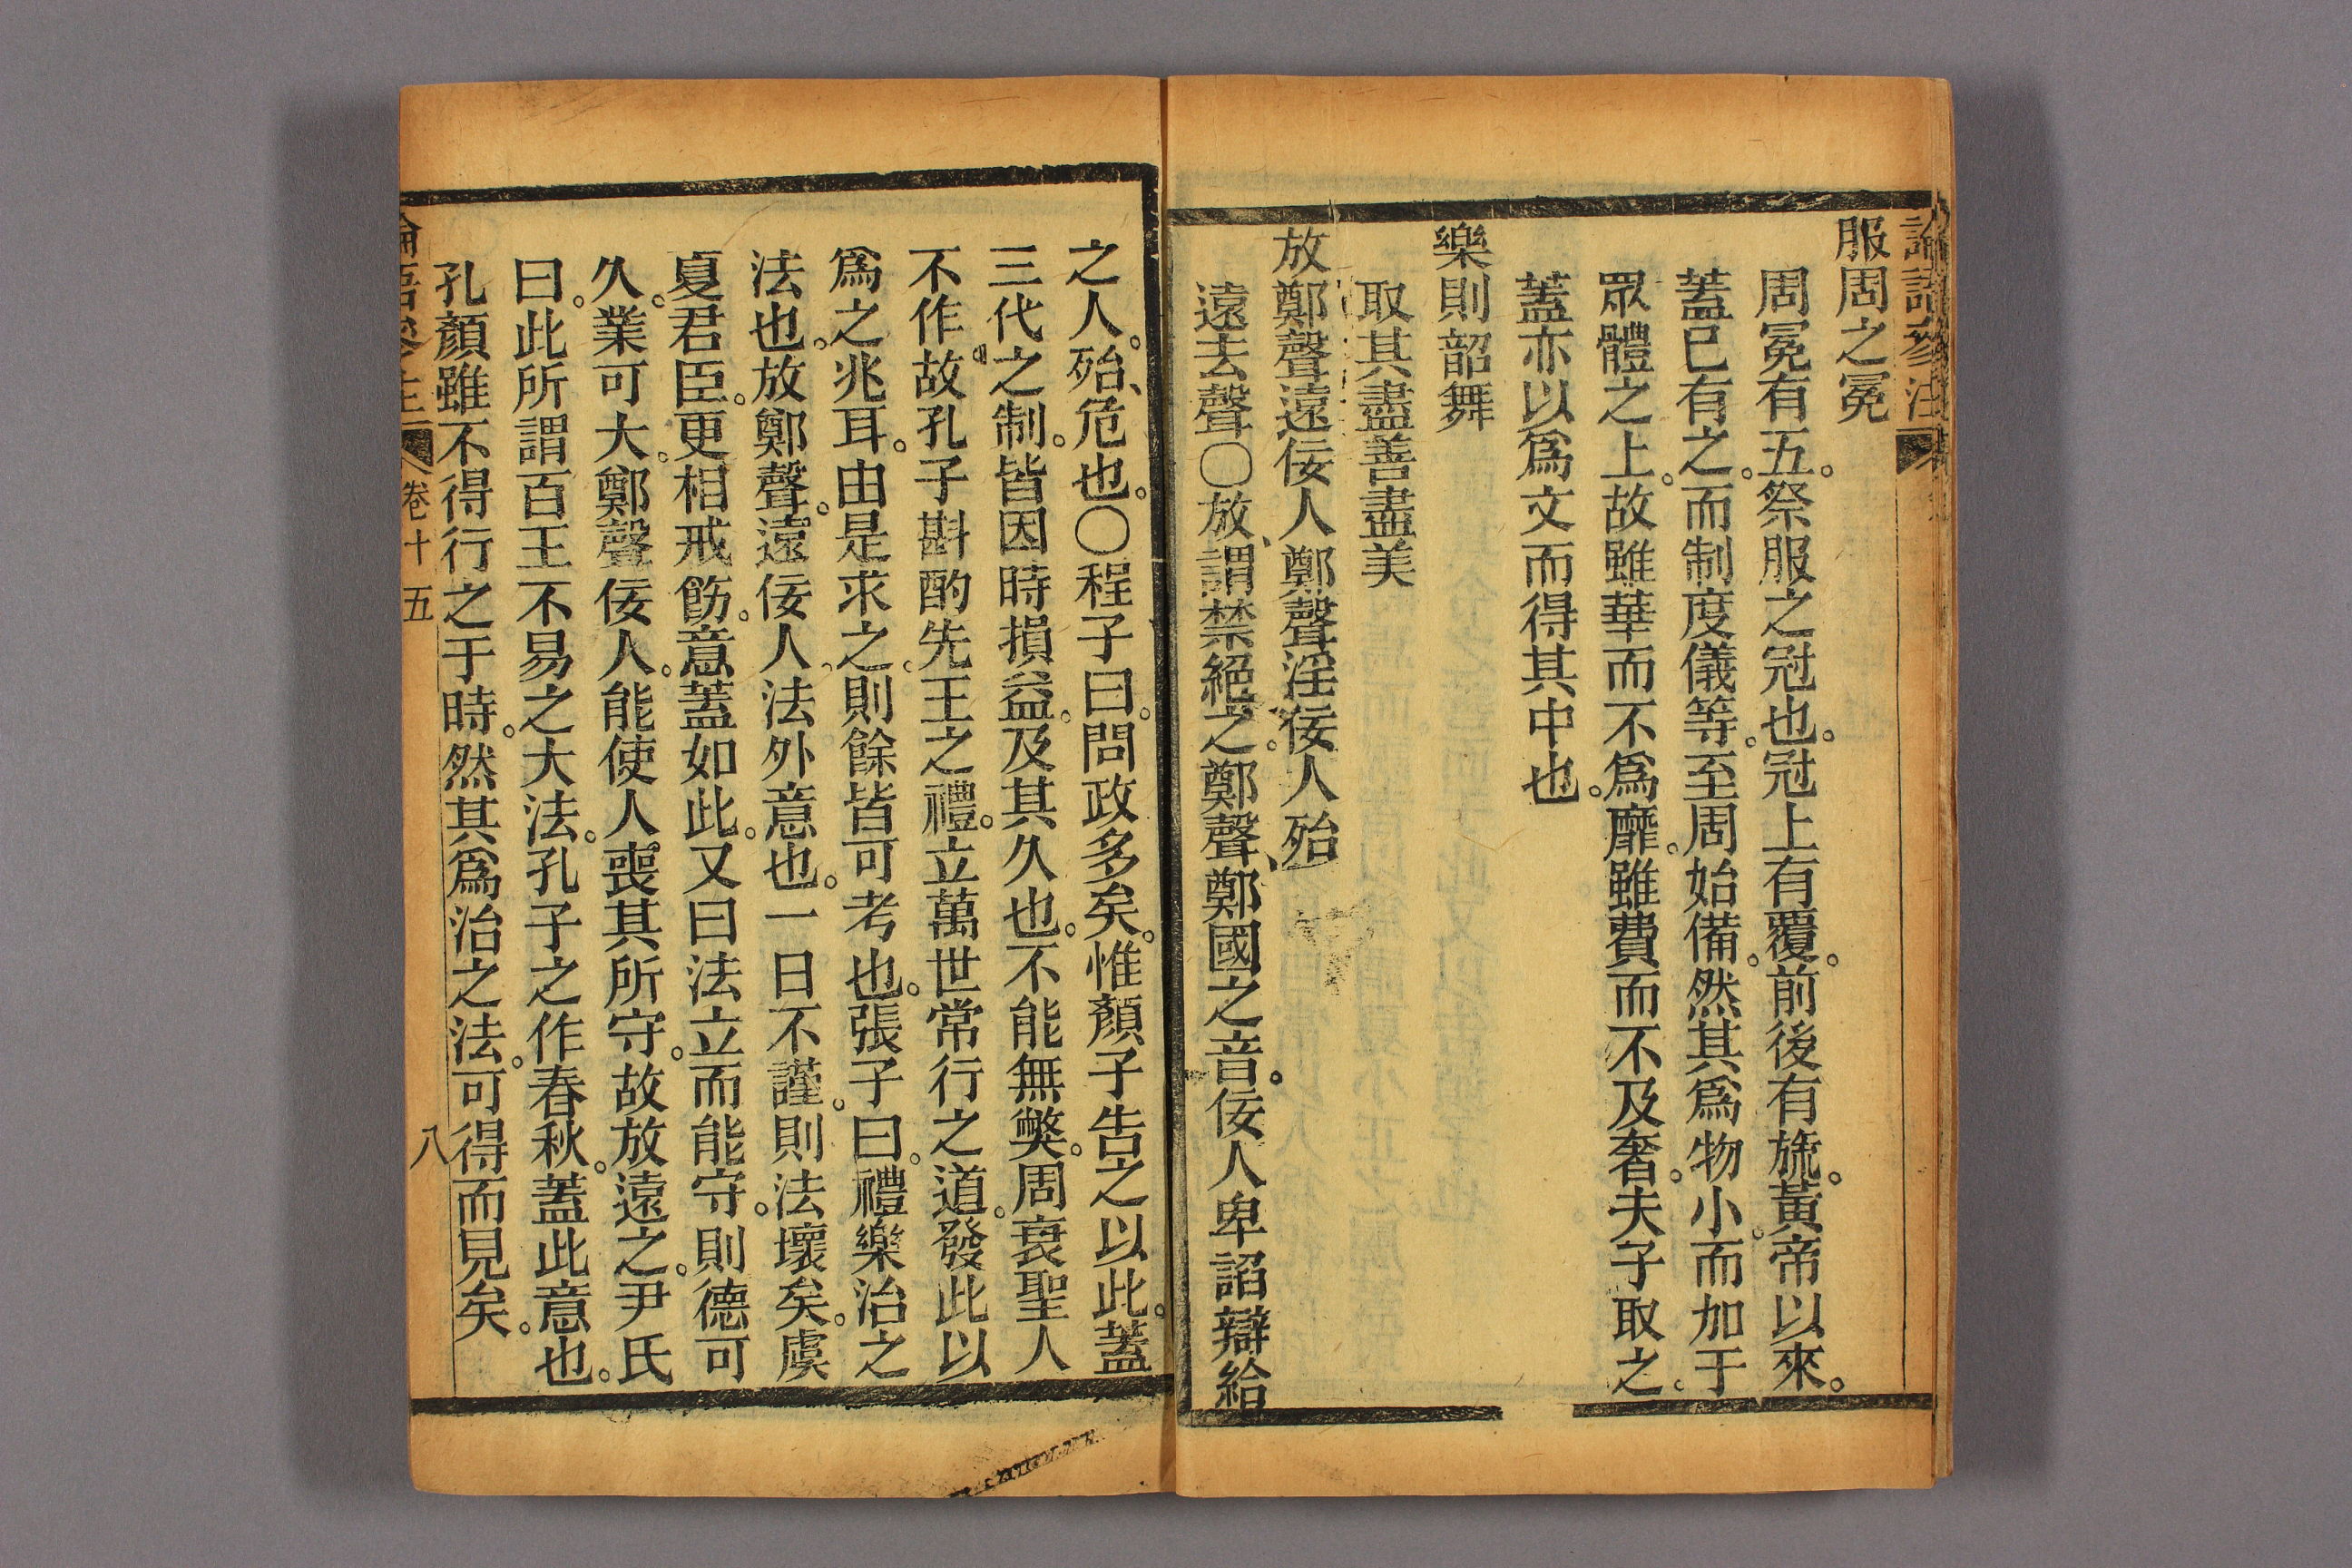 服周之冕
周冕有五。祭服之冠也。冠上有覆。前後有旒。黃帝以來。
蓋已有之。而制度儀等。至周始備。然其爲物小。而加于
眾體之上。故雖華而不爲靡。雖費而不及奢。夫子取之。
蓋亦以爲文而得其中也。
樂則韶舞
取其盡善盡美
放鄭聲遠佞人鄭聲淫佞人殆
遠去聲○放、謂禁絕之。鄭聲、鄭國之音。佞人卑諂辯給
之人。殆、危也。○程子曰。問政多矣。惟顏子告之以此。蓋
三代之制。皆因時損益。及其久也。不能無弊。周衰聖人
不作。故孔子斟酌先王之禮。立萬世常行之道。發此以
爲之兆耳。由是求之。則餘皆可考也。張子曰。禮樂治之
法也。放鄭聲。遠佞人。法外意也。一日不謹。則法壞矣。虞
夏君臣。更相戒飭。意蓋如此。又曰法立而能守。則德可
久。業可大。鄭聲佞人。能使人喪其所守。故放遠之。尹氏
曰。此所謂百王不易之大法。孔子之作春秋。蓋此意也。
孔顏雖不得行之于時。然其爲治之法。可得而見矣。
卷十五
八